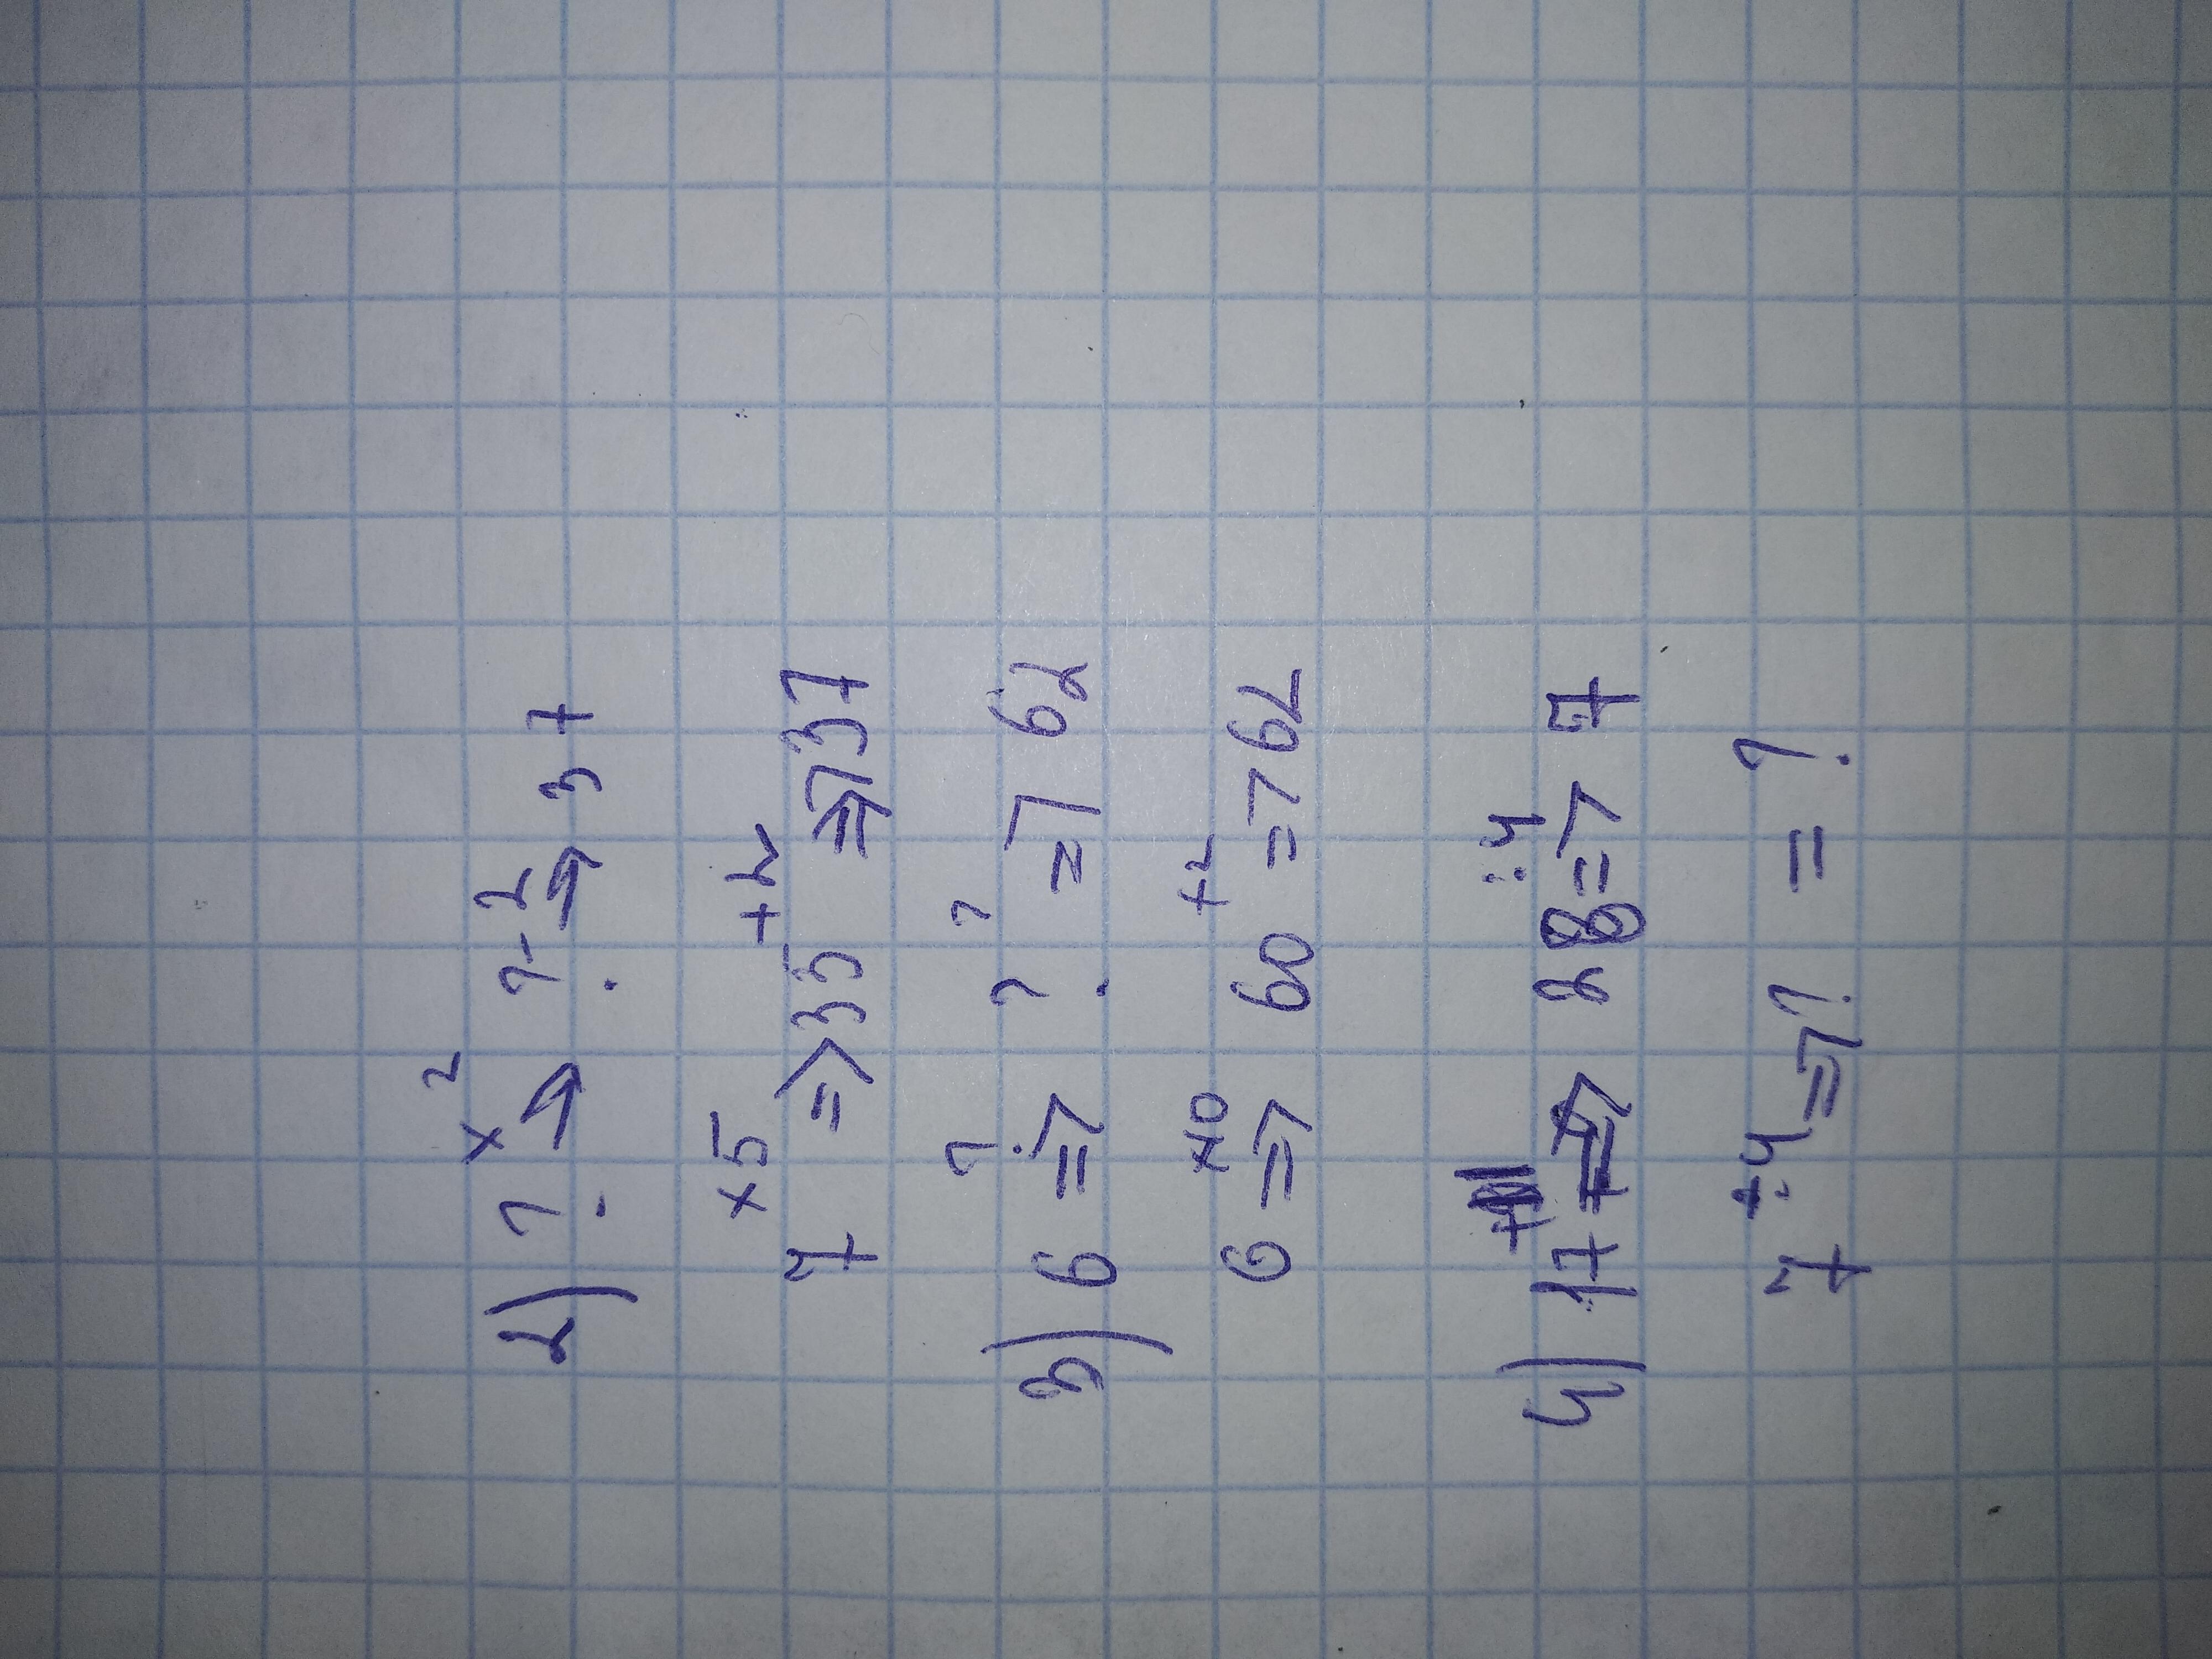 2) ? x 2 → ? - 2 → 37
7 x5 => 35 +2 => 37
3) 6 ? => ? ? => 62
6 x10 => 60 +2 => 62
4) 17 + => 28 :4 => 7
7 :4 => ? = ?